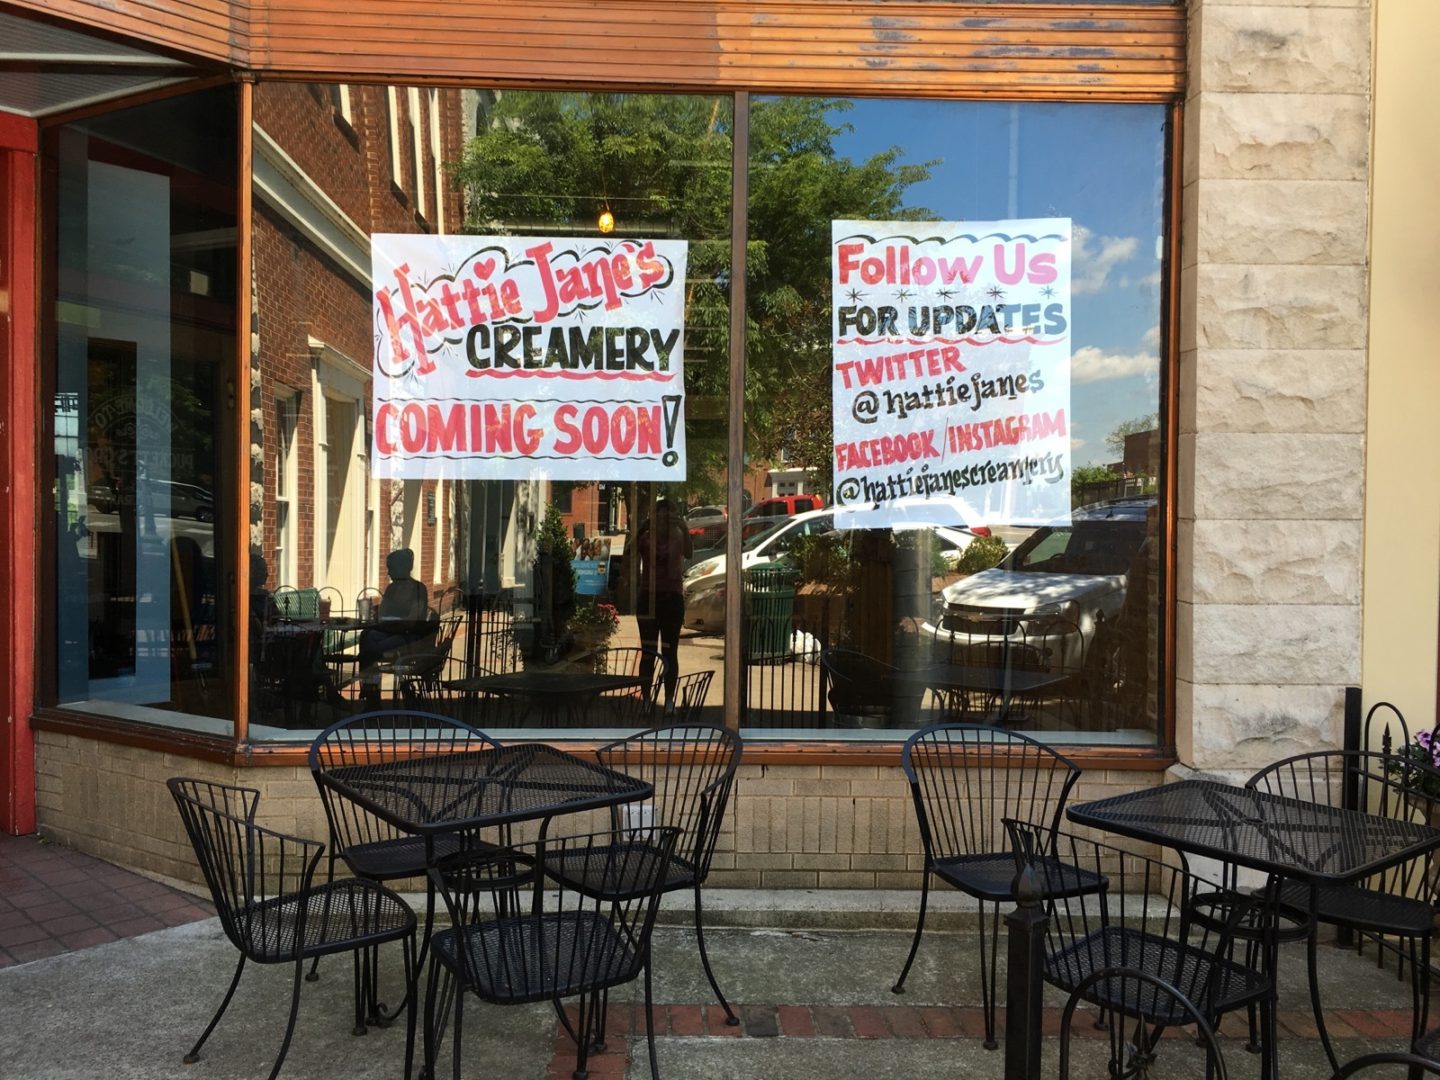 Hattie Jane's
CREAMERY
COMING SOON!
Follow Us
FOR UPDATES
TWITTER
@hattiejanes
FACEBOOK/INSTAGRAM
@hattiejanescreamery